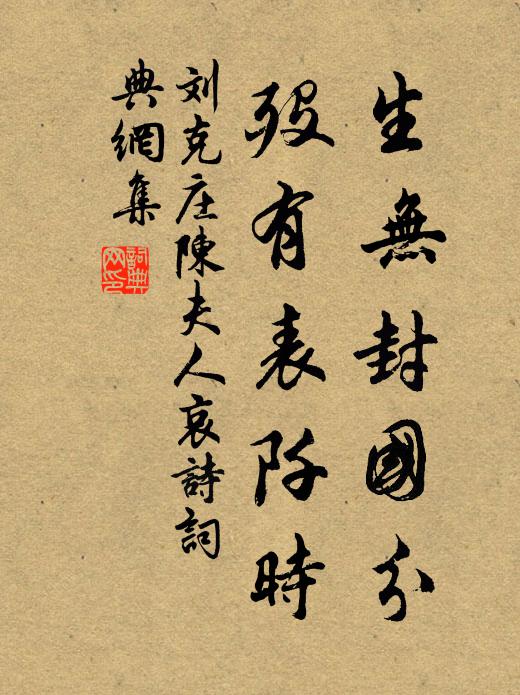 生無封國分
殁有表阡時
刘克庄陳夫人哀詩詞
典網集
詞典
网印